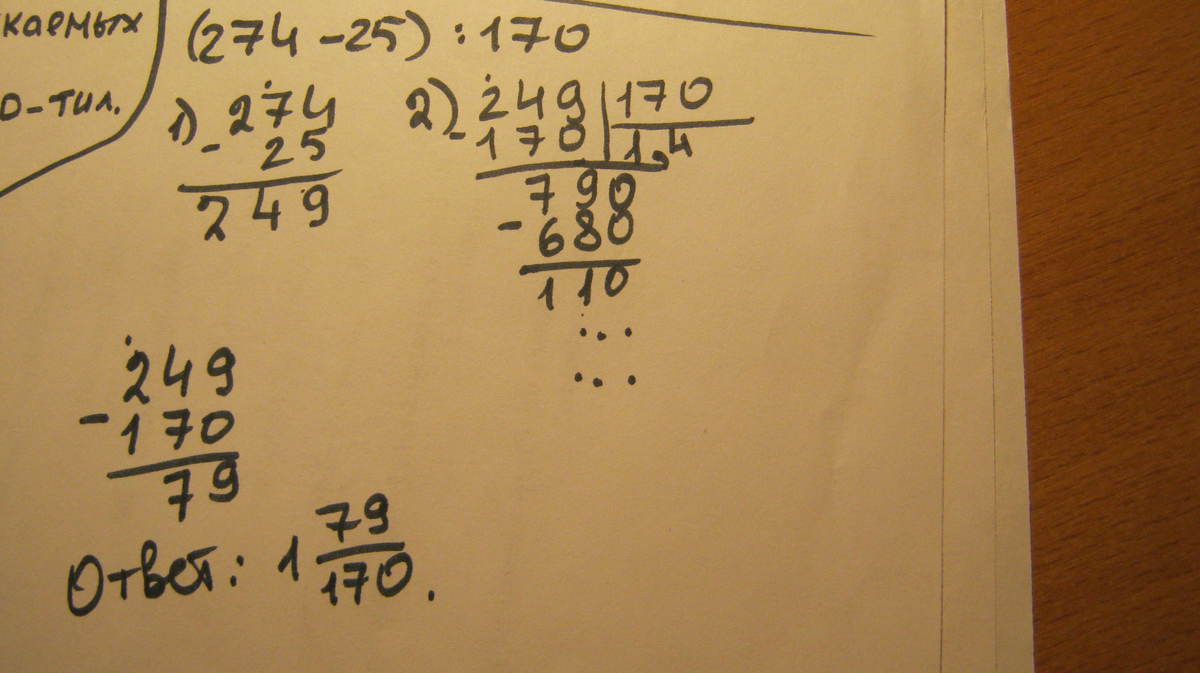 каемых
о-тил.
(274-25):170
1) 274
- 25
249
2) 249 | 170
- 170 | 1,4
790
- 680
110
...
...
249
- 170
79
Ответ: 1 79/170.